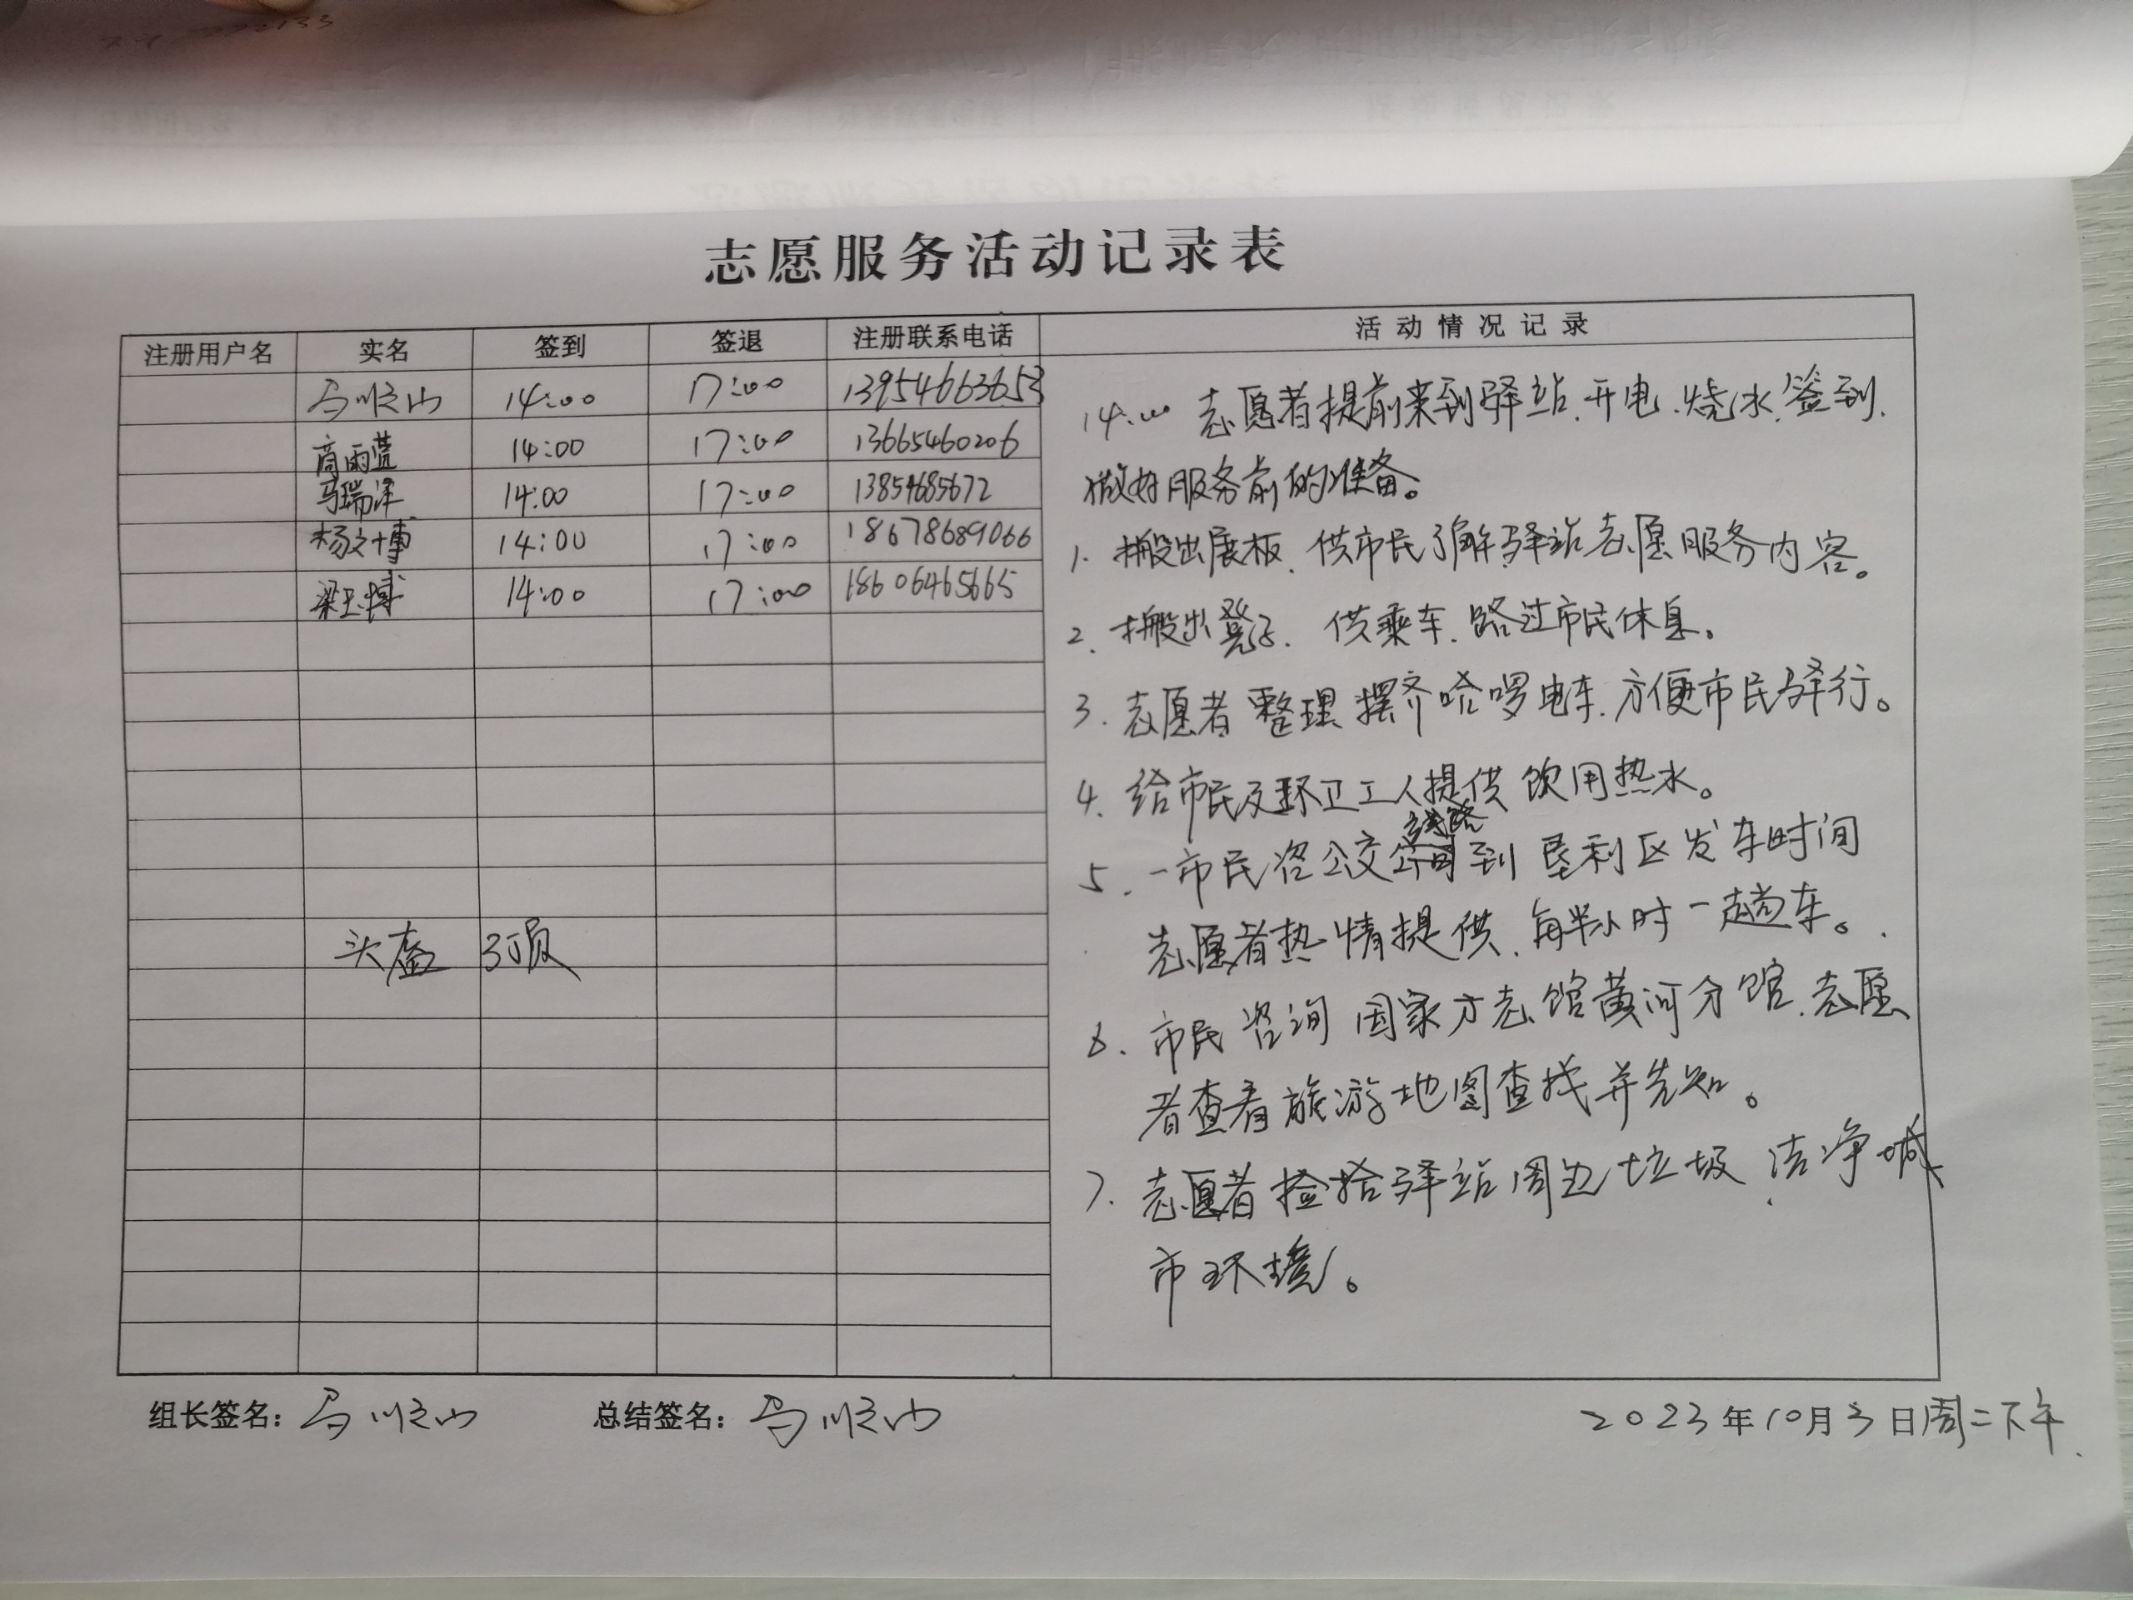 志愿服务活动记录表
注册用户名 实名 签到 签退 注册联系电话 活动情况记录
马顺山 14:00 17:00 13954663653
高雨蓝 14:00 17:00 13665460206
马瑞泽 14:00 17:00 13854685672
杨文博 14:00 17:00 18678689066
梁玉博 14:00 17:00 18606465665
头盔 3顶
14:00 志愿者提前来到驿站、开电、烧水、签到、
做好服务前的准备。
1. 搬出展板、供市民了解驿站志愿服务内容。
2. 搬出凳子、供乘车、路过市民休息。
3. 志愿者整理摆齐哈啰电车、方便市民骑行。
4. 给市民及环卫工人提供饮用热水。
线路
5. 一市民咨公交到垦利区发车时间
志愿者热情提供、每半小时一趟车。
6. 市民咨询国家方志馆黄河分馆、志愿
者查看旅游地图查找并告知。
7. 志愿者捡拾驿站周边垃圾、洁净城
市环境。
组长签名:马顺山 总结签名:马顺山 2023年10月3日周二下午